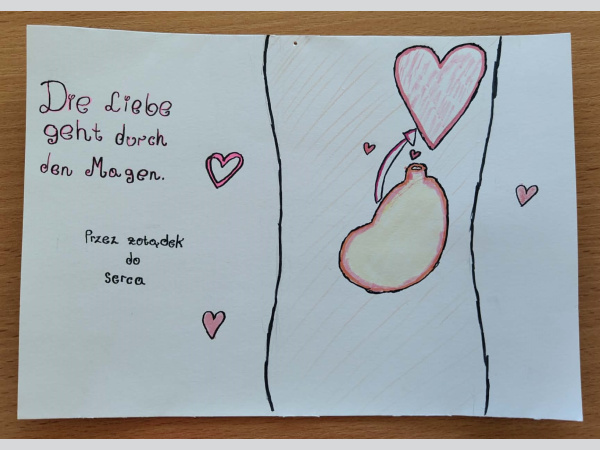 Die Liebe
geht durch
den Magen.
Przez żołądek
do
serca